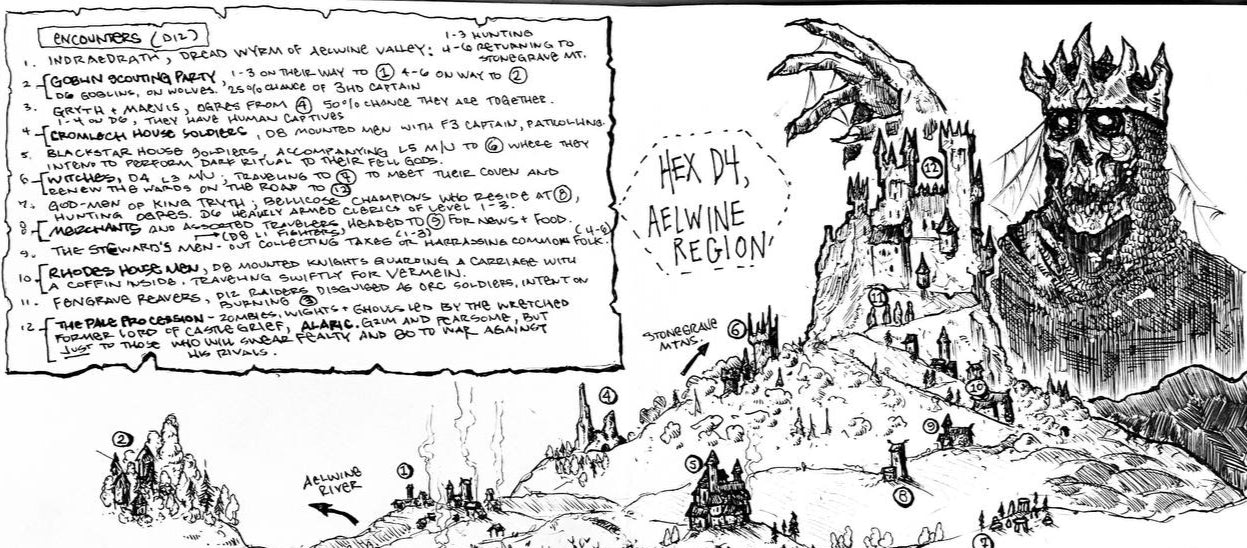 ENCOUNTERS (D12)
1. INDRAEDRATH, DREAD WYRM OF AELWINE VALLEY: 1-3 HUNTING
4-6 RETURNING TO STONEGRAVE MT.
2 GOBLIN SCOUTING PARTY, 1-3 ON THEIR WAY TO 1 4-6 ON WAY TO 2
D6 GOBLINS, ON WOLVES. 25% CHANCE OF 3HD CAPTAIN
3. GRYTH + MAEVIS, OGRES FROM 4 50% CHANCE THEY ARE TOGETHER.
1-4 ON D6, THEY HAVE HUMAN CAPTIVES
4 CROMLECH HOUSE SOLDIERS, D8 MOUNTED MEN WITH F3 CAPTAIN, PATROLLING.
5. BLACKSTAR HOUSE SOLDIERS, ACCOMPANYING L5 M/U TO 6 WHERE THEY
INTEND TO PERFORM DARK RITUAL TO THEIR FELL GODS.
6 WITCHES, D4 L3 M/U, TRAVELING TO 7 TO MEET THEIR COVEN AND
RENEW THE WARDS ON THE ROAD TO 12
7. GOD-MEN OF KING TRYTH, BELLICOSE CHAMPIONS WHO RESIDE AT 8,
HUNTING OGRES. D6 HEAVILY ARMED CLERICS OF LEVEL 1-3.
8 MERCHANTS AND ASSORTED TRAVELERS HEADED TO 5 FOR NEWS + FOOD.
(D8 L1 FIGHTERS)
9. THE STEWARD'S MEN - OUT COLLECTING TAXES (1-3) OR HARRASSING COMMON FOLK. (4-6)
10 RHODES HOUSE MEN, D8 MOUNTED KNIGHTS GUARDING A CARRIAGE WITH
A COFFIN INSIDE. TRAVELING SWIFTLY FOR VERMEIN.
11. FENGRAVE REAVERS, D12 RAIDERS DISGUISED AS ORC SOLDIERS, INTENT ON
BURNING 3
12 THE PALE PROCESSION - ZOMBIES, WIGHTS + GHOULS LED BY THE WRETCHED
FORMER LORD OF CASTLE GRIEF, ALARIC. GRIM AND FEARSOME, BUT
JUST TO THOSE WHO WILL SWEAR FEALTY AND GO TO WAR AGAINST
HIS RIVALS.
HEX D4,
AELWINE
REGION
STONEGRAVE
MTNS.
AELWINE
RIVER
12
11
6
10
4
9
2
1
5
8
7